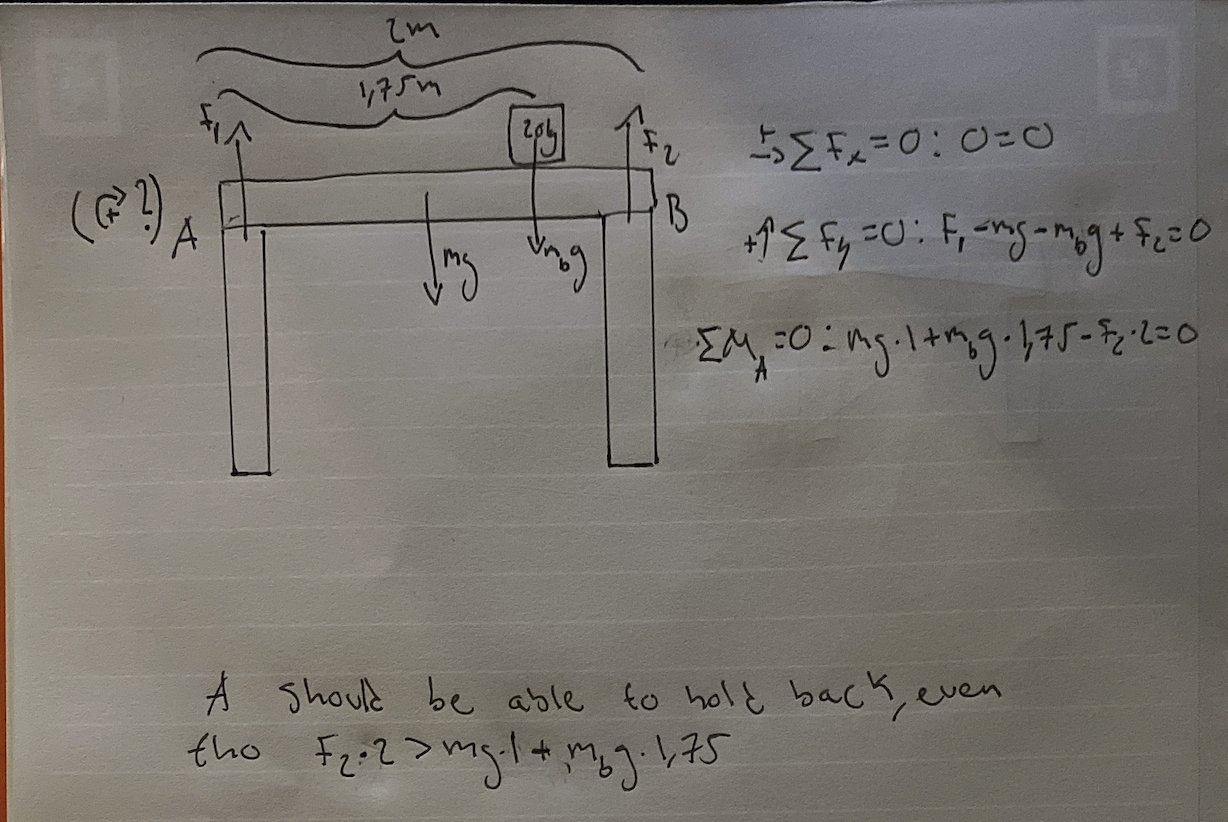 2m
1,75m
F₁
20kg
F₂
→+ ΣFₓ=0: 0=0
(↻+ ?)
A
B
+↑ ΣFy=0: F₁-mg-m_bg+F₂=0
mg
m_bg
ΣM_A=0: mg·1+m_bg·1,75-F₂·2=0
A should be able to hold back, even
tho F₂·2>mg·1+m_bg·1,75